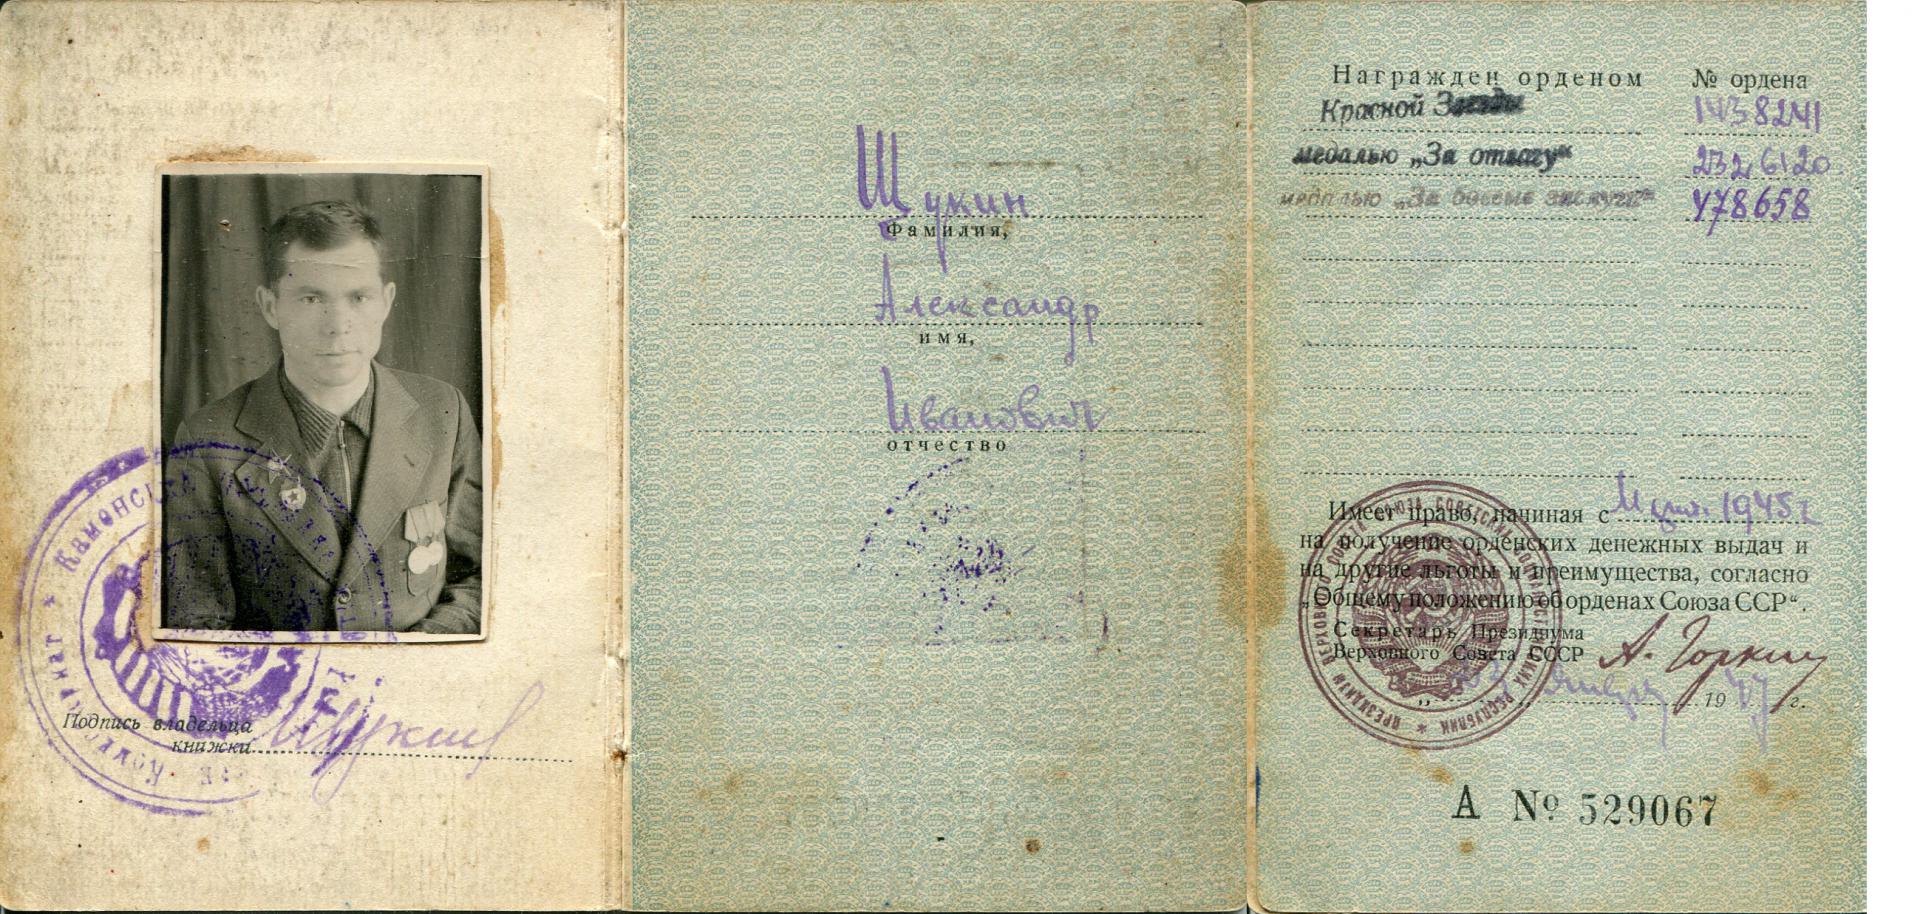 Подпись владельца
книжки Щукин
Щукин
Фамилия,
Александр
имя,
Иванович
отчество
Награжден орденом № ордена
Красной Звезды 1438241
медалью „За отвагу“ 2326120
медалью „За боевые заслуги“ 478658
Имеет право, начиная с 1945 г
на получение орденских денежных выдач и
на другие льготы и преимущества, согласно
„Общему положению об орденах Союза ССР“.
Секретарь Президиума
Верховного Совета СССР А. Горкин
января 1947 г.
ПРЕЗИДИУМ ВЕРХОВНОГО СОВЕТА СОЮЗА СОВЕТСКИХ СОЦИАЛИСТИЧЕСКИХ РЕСПУБЛИК
А № 529067